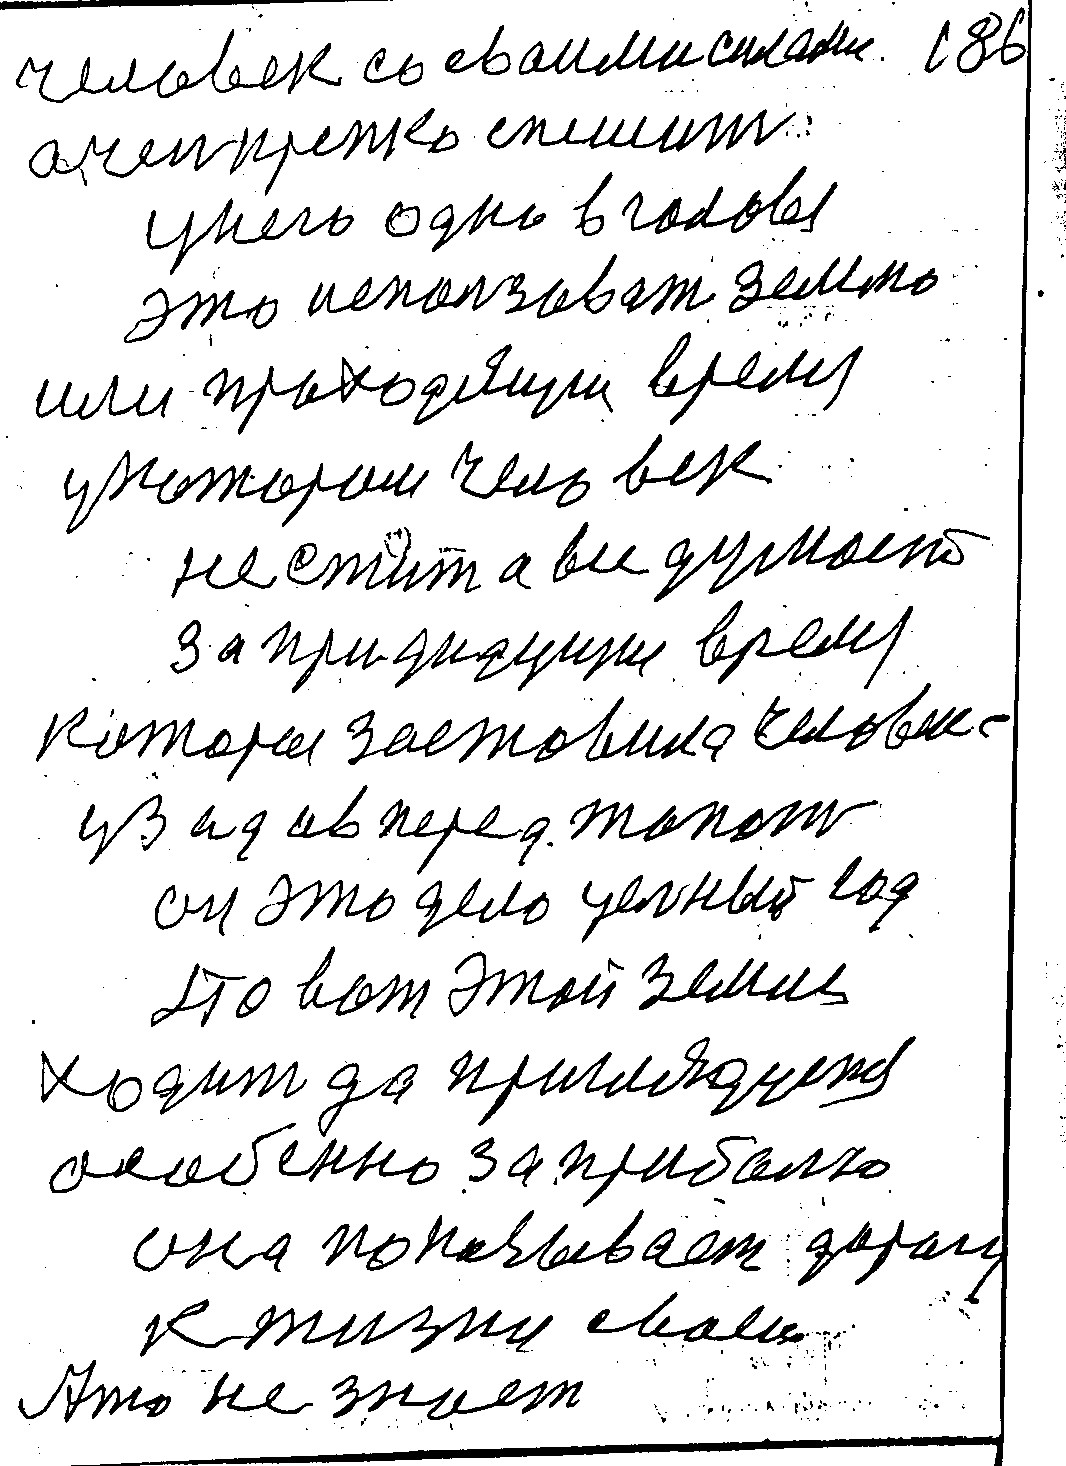 человек со сваими силами. 186
очен крепко спешит
у него одно в голове
это исползоват землю
или проходящи время
у котором человек
не спит а все думоет
за придидущие время
которае застовила человек
узад а вперед топот
он это дело целный год
по вот этой земли
ходит да приглядуется
особенно за прибалю
она показывает дорогу
к жизни сваей
Хто не знает